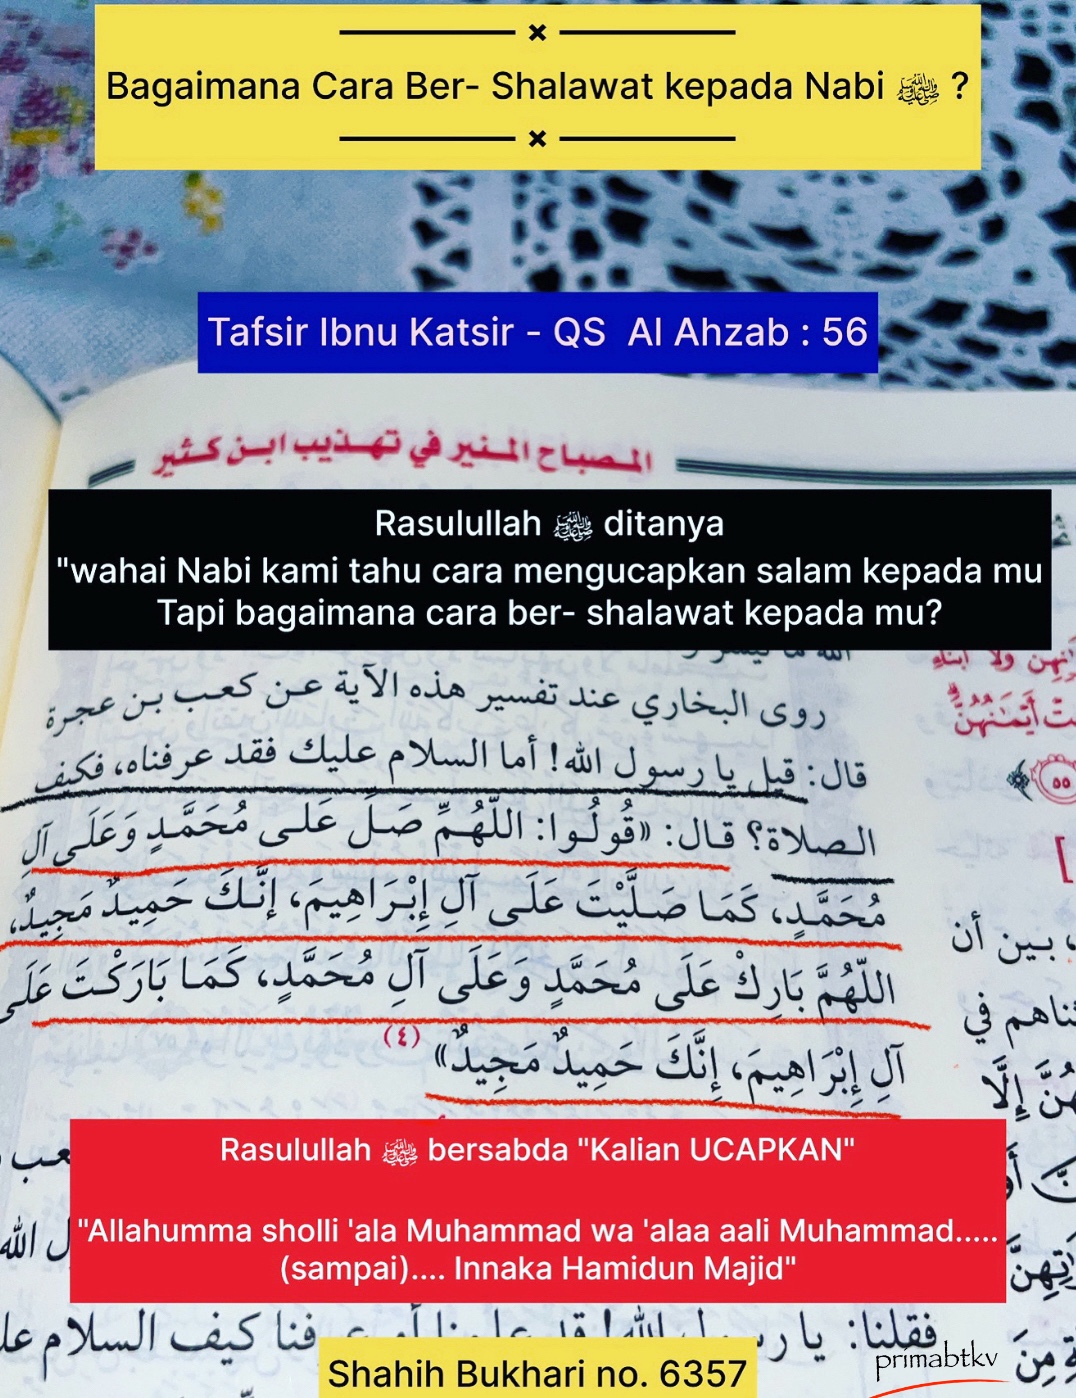 Bagaimana Cara Ber- Shalawat kepada Nabi ﷺ ?
Tafsir Ibnu Katsir - QS Al Ahzab : 56
المصباح المنير في تهذيب ابن كثير
Rasulullah ﷺ ditanya
"wahai Nabi kami tahu cara mengucapkan salam kepada mu
Tapi bagaimana cara ber- shalawat kepada mu?
روى البخاري عند تفسير هذه الآية عن كعب بن عجرة
قال: قيل يا رسول الله! أما السلام عليك فقد عرفناه، فكيف
الصلاة؟ قال: «قُولُوا: اللّهُمَّ صَلِّ عَلَى مُحَمَّدٍ وَعَلَى آلِ
مُحَمَّدٍ، كَمَا صَلَّيْتَ عَلَى آلِ إِبْرَاهِيمَ، إِنَّكَ حَمِيدٌ مَجِيدٌ،
اللّهُمَّ بَارِكْ عَلَى مُحَمَّدٍ وَعَلَى آلِ مُحَمَّدٍ، كَمَا بَارَكْتَ عَلَى
آلِ إِبْرَاهِيمَ، إِنَّكَ حَمِيدٌ مَجِيدٌ» (٤)
Rasulullah ﷺ bersabda "Kalian UCAPKAN"
"Allahumma sholli 'ala Muhammad wa 'alaa aali Muhammad.....
(sampai).... Innaka Hamidun Majid"
فقلنا: يا رسول الله! قد كيف السلام
Shahih Bukhari no. 6357
primabtkv
ولا أبناء
أَيْمَٰنُهُنَّ
٥٥
بين أن
في
إِلَّا
مِنَ